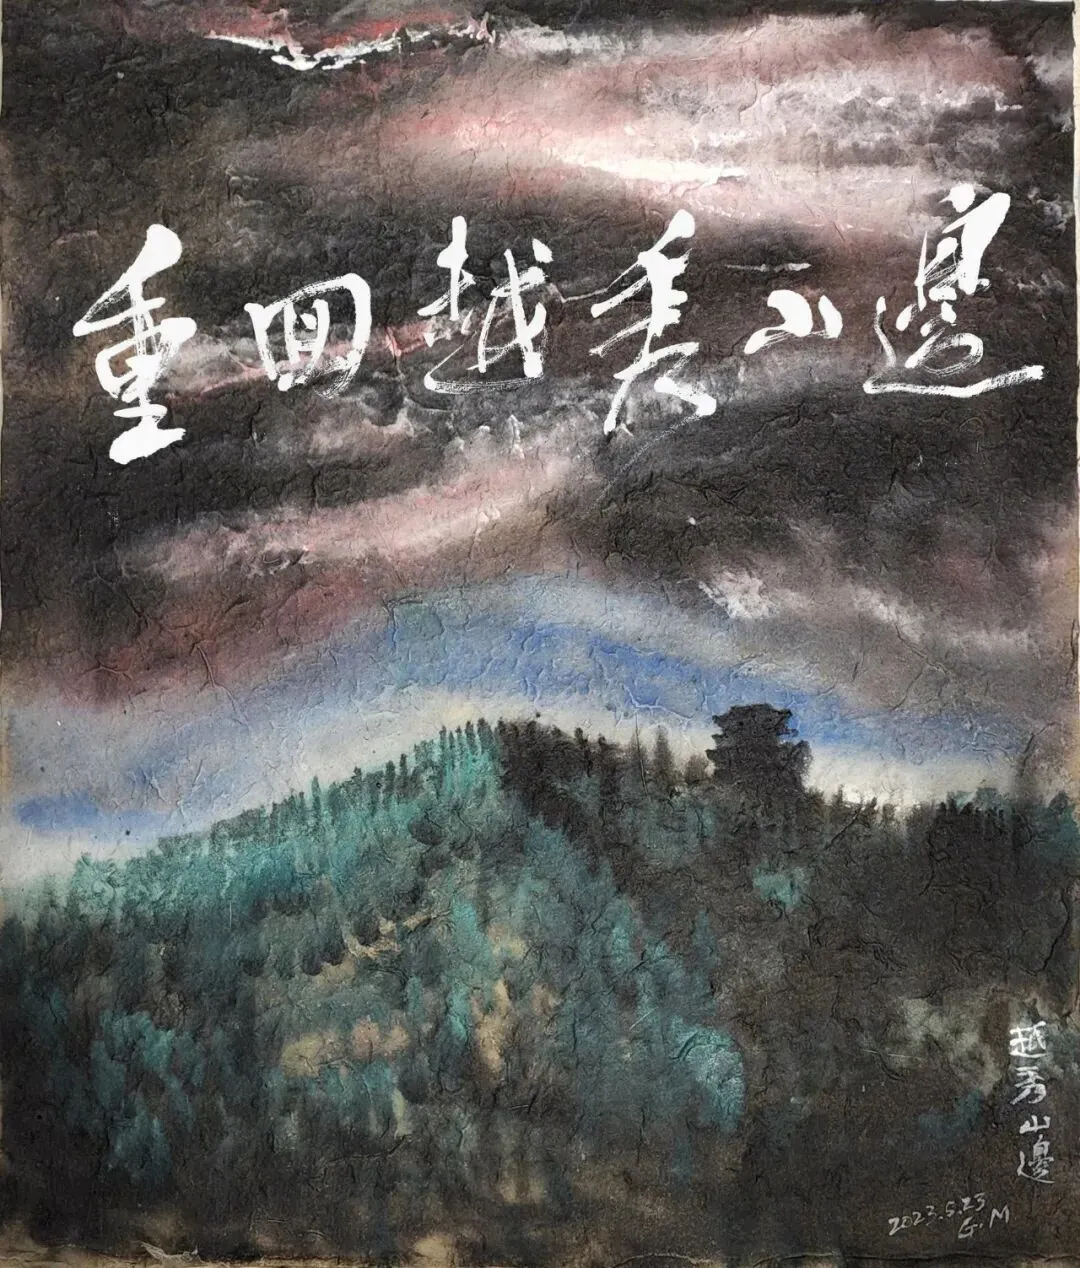 重回越秀山邊
越秀山邊
2023.5.23
G.M